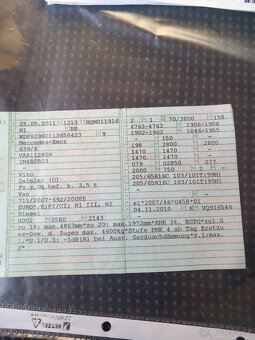 25.05.2011 1313 BQM011916
N1 BB
WDF63960113658423 9
Mercedes-Benz
639/4
VAA1128GN
1M4B2R23
Vito
Daimler (D)
Pz.z.Gü.bef. b. 3,5 t
Van
715/2007*692/2008E
EURO5;R:PI/CI; N1 III, N2
Diesel
0002 35E0 2143
2 1 70/3800 158
4763-4763 1906-1906
1902-1902 1846-1955
198 2800 2800
1470 1470
1470 1470
079 02850 077
2000 750 2
205/65R16C 103/101T(99H)
205/65R16C 103/101T(99H)
e1*2007/46*0458*01
04.11.2010 K VQ916546
zu 18: max.4863mm*zu 20: max.1972mm*AHK lt. EGTG*zul.G
es-Gew. d. Zuges max. 4600kg*Stufe PMK 4 ab Tag Erstzu
l.*U.1/U.3: -1dB(A) bei Ausr. Geräuschdämmung*S.1:max.
3*
HETZEL